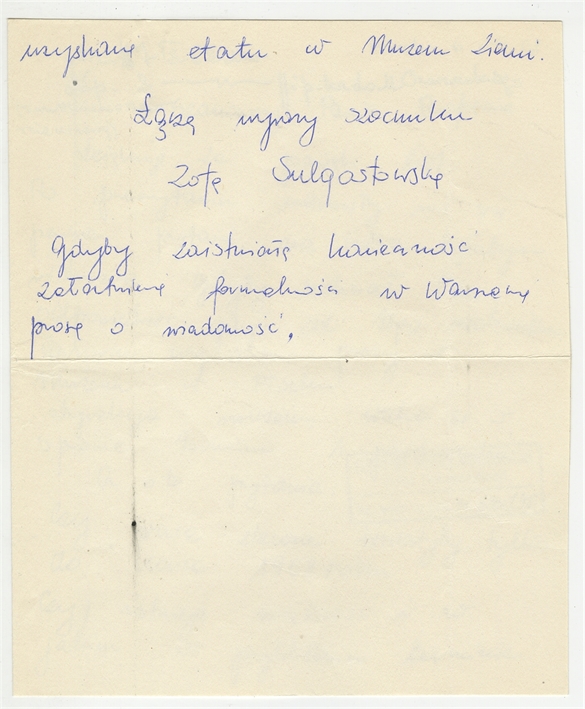 uzyskania etatu w Muzeum Ziemi.
Łączę wyrazy szacunku
Zofia Sulgostowska
Gdyby zaistniała konieczność
załatwienia formalności w Warszawie
proszę o wiadomość.